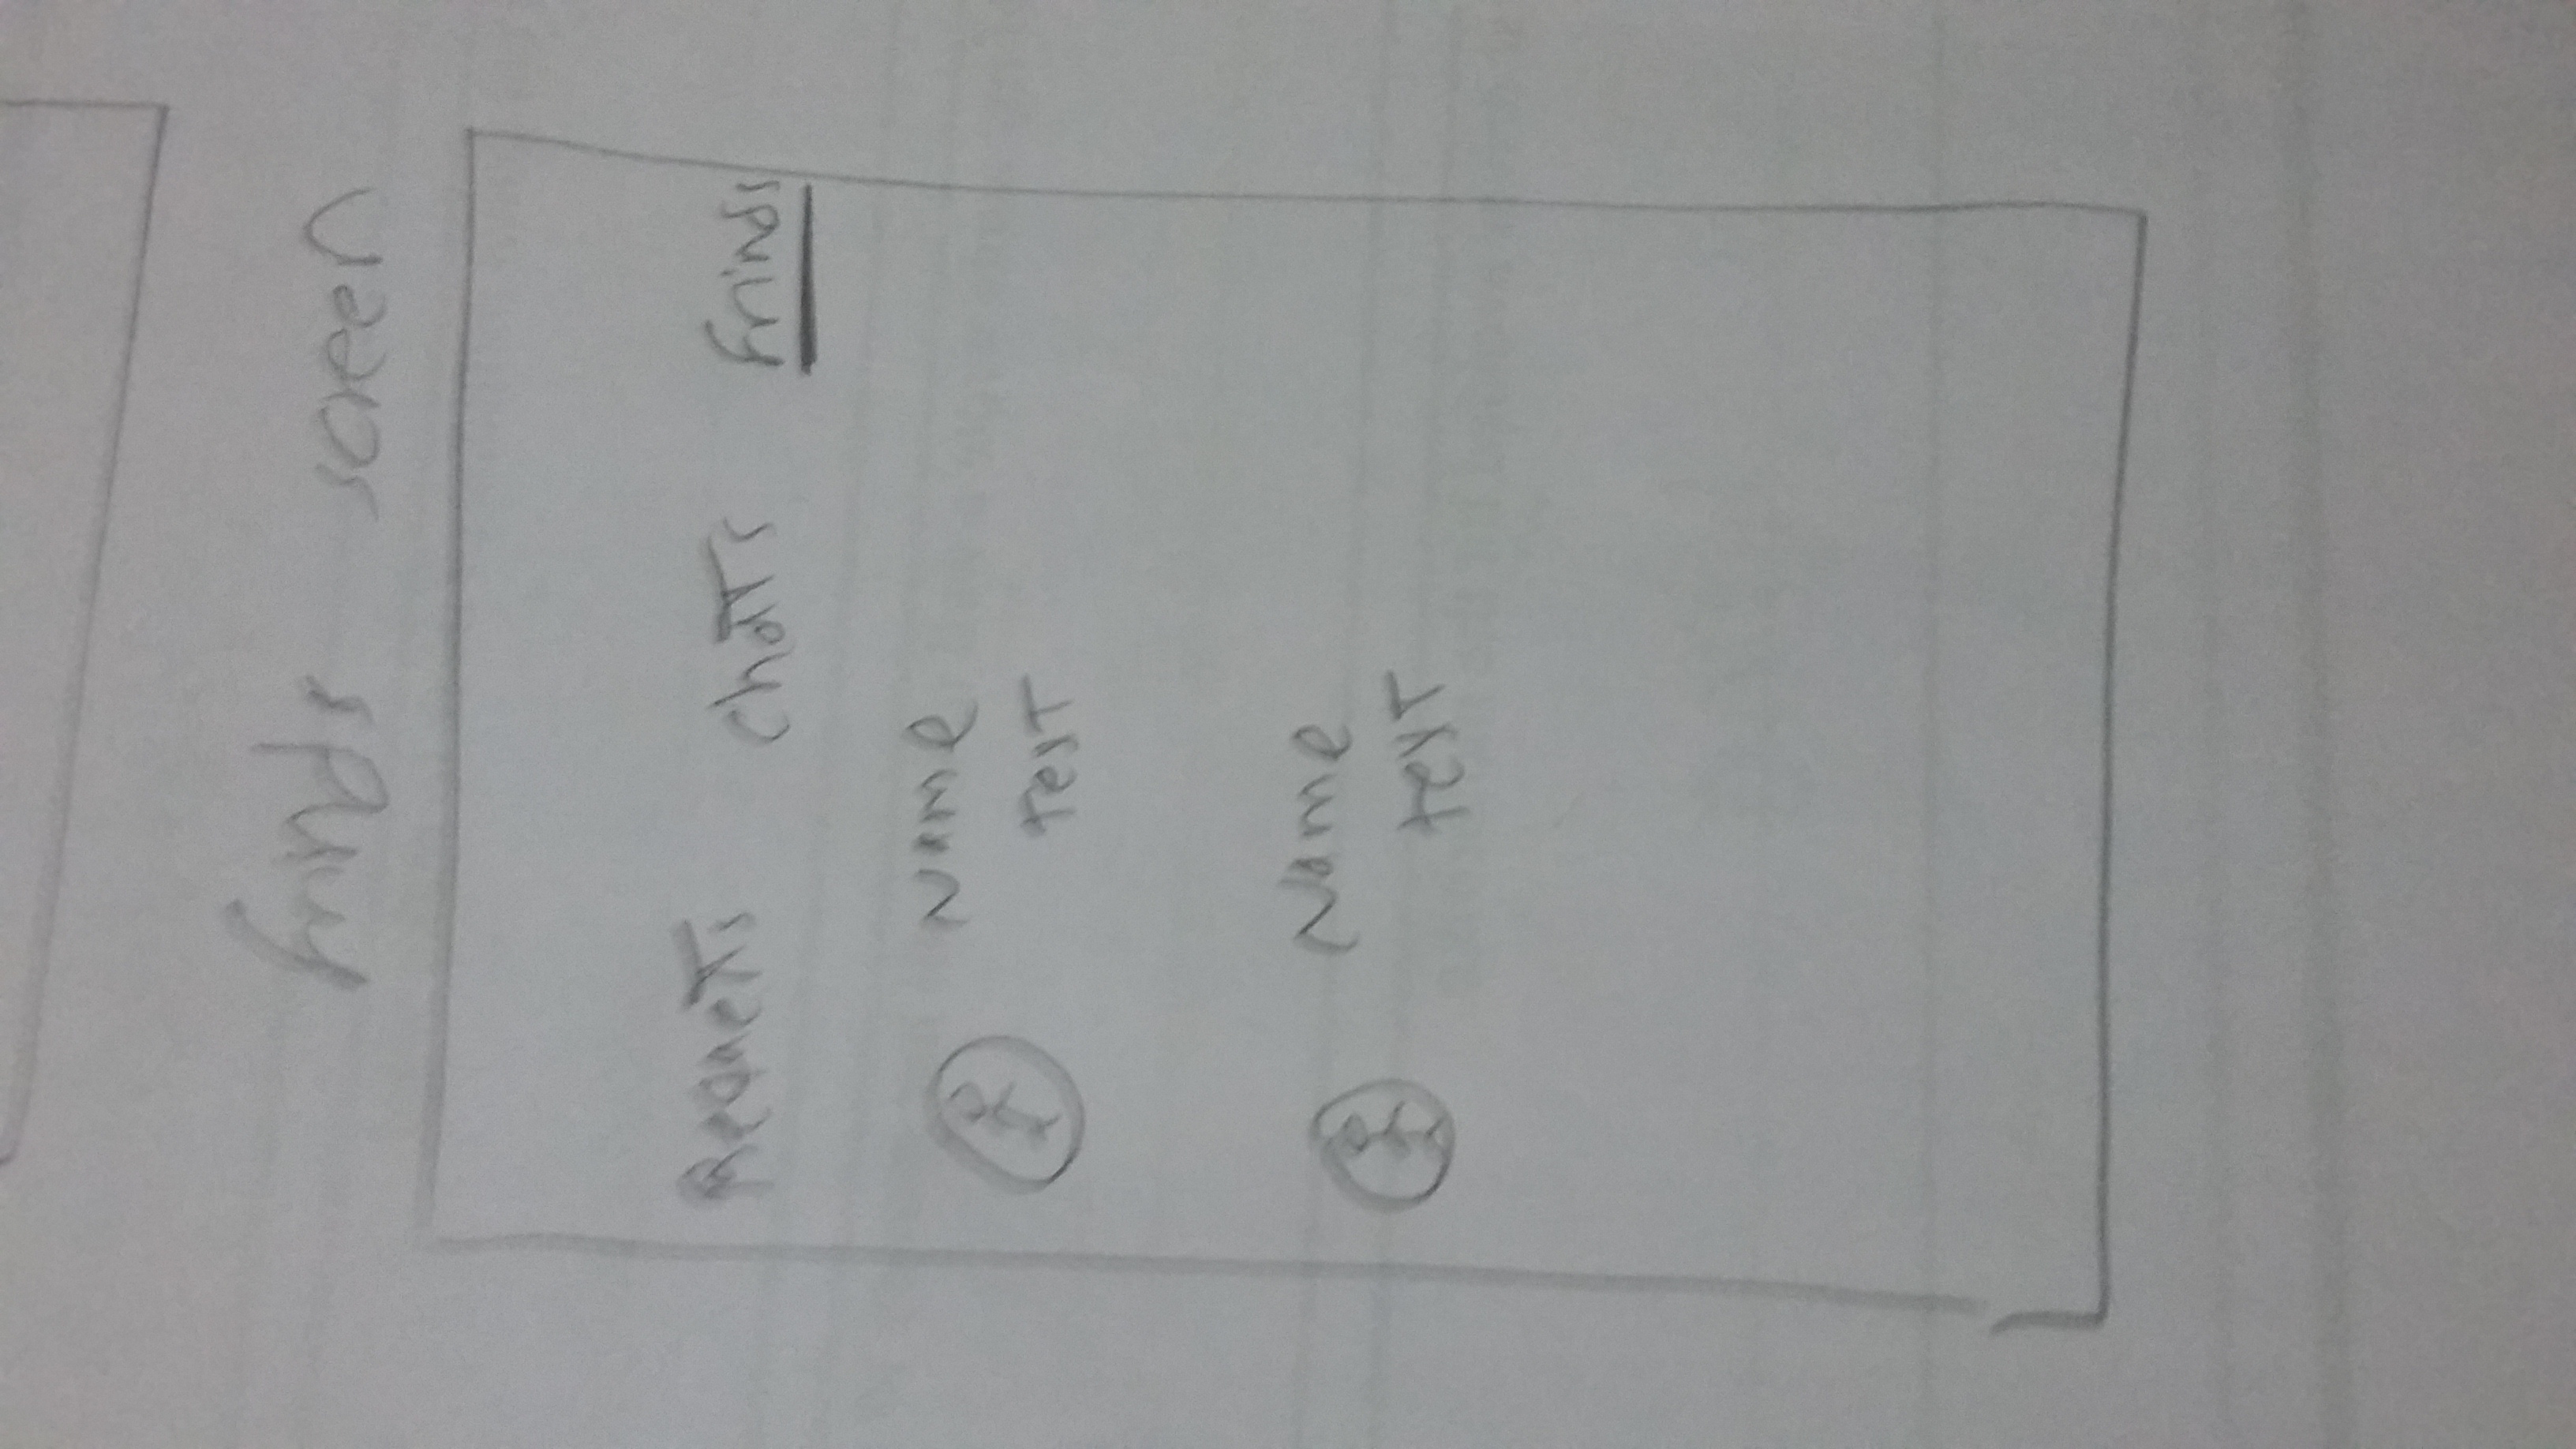 frinds screen
Requets chatts frinds
Name
text
Name
text